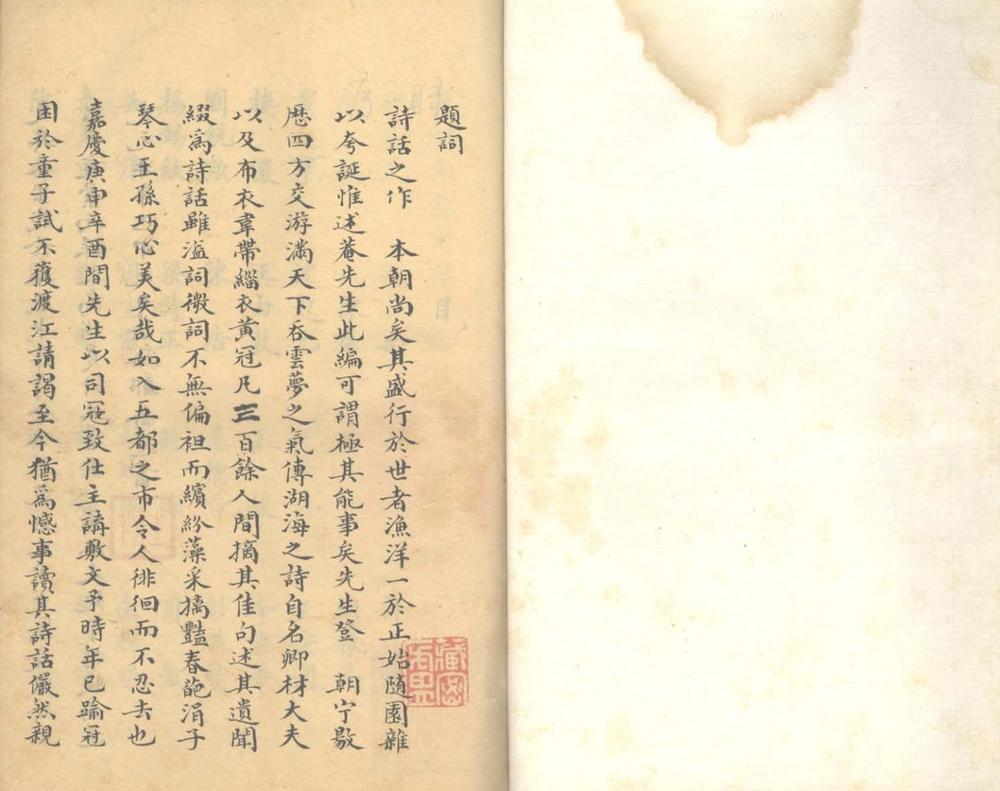 題詞
詩話之作 本朝尚矣其盛行於世者漁洋一於正始随園雜
以夸誕惟述菴先生此編可謂極其能事矣先生登 朝宁敭
歷四方交游滿天下吞雲夢之氣傳湖海之詩自名卿材大夫
以及布衣韋帶緇衣黃冠凡三百餘人間摘其佳句述其遺聞
綴爲詩話雖溢詞微詞不無偏袒而繽紛藻采摛豔春葩涓子
琴心王孫巧心美矣哉如入五都之市令人徘徊而不忍去也
嘉慶庚申辛酉間先生以司冦致仕主講敷文予時年已踰冠
困於童子試不獲渡江請謁至今猶爲憾事讀其詩話儼然親